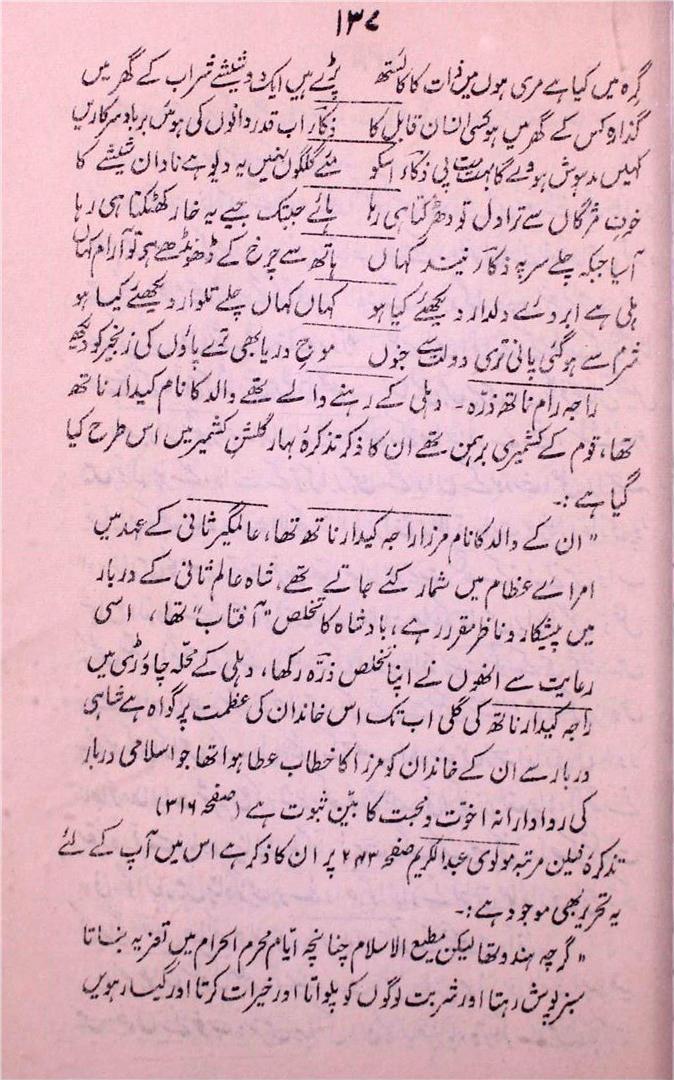 ۱۳۷
گرہ میں کیا ہے مری ہوں میں ذات کا کائستھ پڑے ہیں ایک دو شیشے شراب کے گھر میں
گذارہ کس کے گھر میں ہو کسی انسان قابل کا ذکار اب قدر دانوں کی ہوئیں برباد سرکاریں
کہیں مدہوش ہووے گا بہت مت پی ذکار اسکو مئے گلگوں نہیں یہ دیو ہے نادان شیشے کا
خوفِ مژگاں سے ترا دل تو دھڑکتا ہی رہا ہائے جبتک جیے یہ خار کھٹکتا ہی رہا
آسیا جبکہ چلے سر پہ ذکار نیند کہاں ہاتھ سے چرخ کے ڈھونڈھے ہے تو آرام کہاں
ہلی ہے ابروئے دلدار دیکھئے کیا ہو کہاں کہاں چلے تلوار دیکھئے کیا ہو
شرم سے ہوگئی پانی تری دولت سے جنوں موج دریا بھی ترے پاؤں کی زنجیر کو دیکھ
راجہ رام ناتھ ذرّہ۔ دہلی کے رہنے والے تھے والد کا نام کیدار ناتھ
تھا، قوم کے کشمیری برہمن تھے ان کا ذکر تذکرۂ بہار گلشنِ کشمیر میں اس طرح کیا
گیا ہے:۔
"ان کے والد کا نام مرزا راجہ کیدار ناتھ تھا، عالمگیر ثانی کے عہد میں
امرائے عظام میں شمار کئے جاتے تھے، شاہ عالم ثانی کے دربار
میں پیشکار و ناظر مقرر رہے، بادشاہ کا تخلص "آفتاب" تھا، اسی
رعایت سے انھوں نے اپنا تخلص ذرّہ رکھا، دہلی کے محلہ چاوڑی میں
راجہ کیدار ناتھ کی گلی اب تک اس خاندان کی عظمت پر گواہ ہے شاہی
دربار سے ان کے خاندان کو مرزا کا خطاب عطا ہوا تھا جو اسلامی دربار
کی روادارانہ اخوّت و محبت کا بیّن ثبوت ہے (صفحہ ۳۱۶)
تذکرۂ فیلن مرتبہ مولوی عبدالکریم صفحہ ۲۷۳ پر ان کا ذکر ہے اس میں آپ کے لئے
یہ تحریر بھی موجود ہے:۔
"گرچہ ہندو تھا لیکن مطیع الاسلام چنانچہ ایّام محرم الحرام میں تعزیہ بناتا
سبز پوش رہتا اور شربت لوگوں کو پلواتا اور خیرات کرتا اور گیارہویں